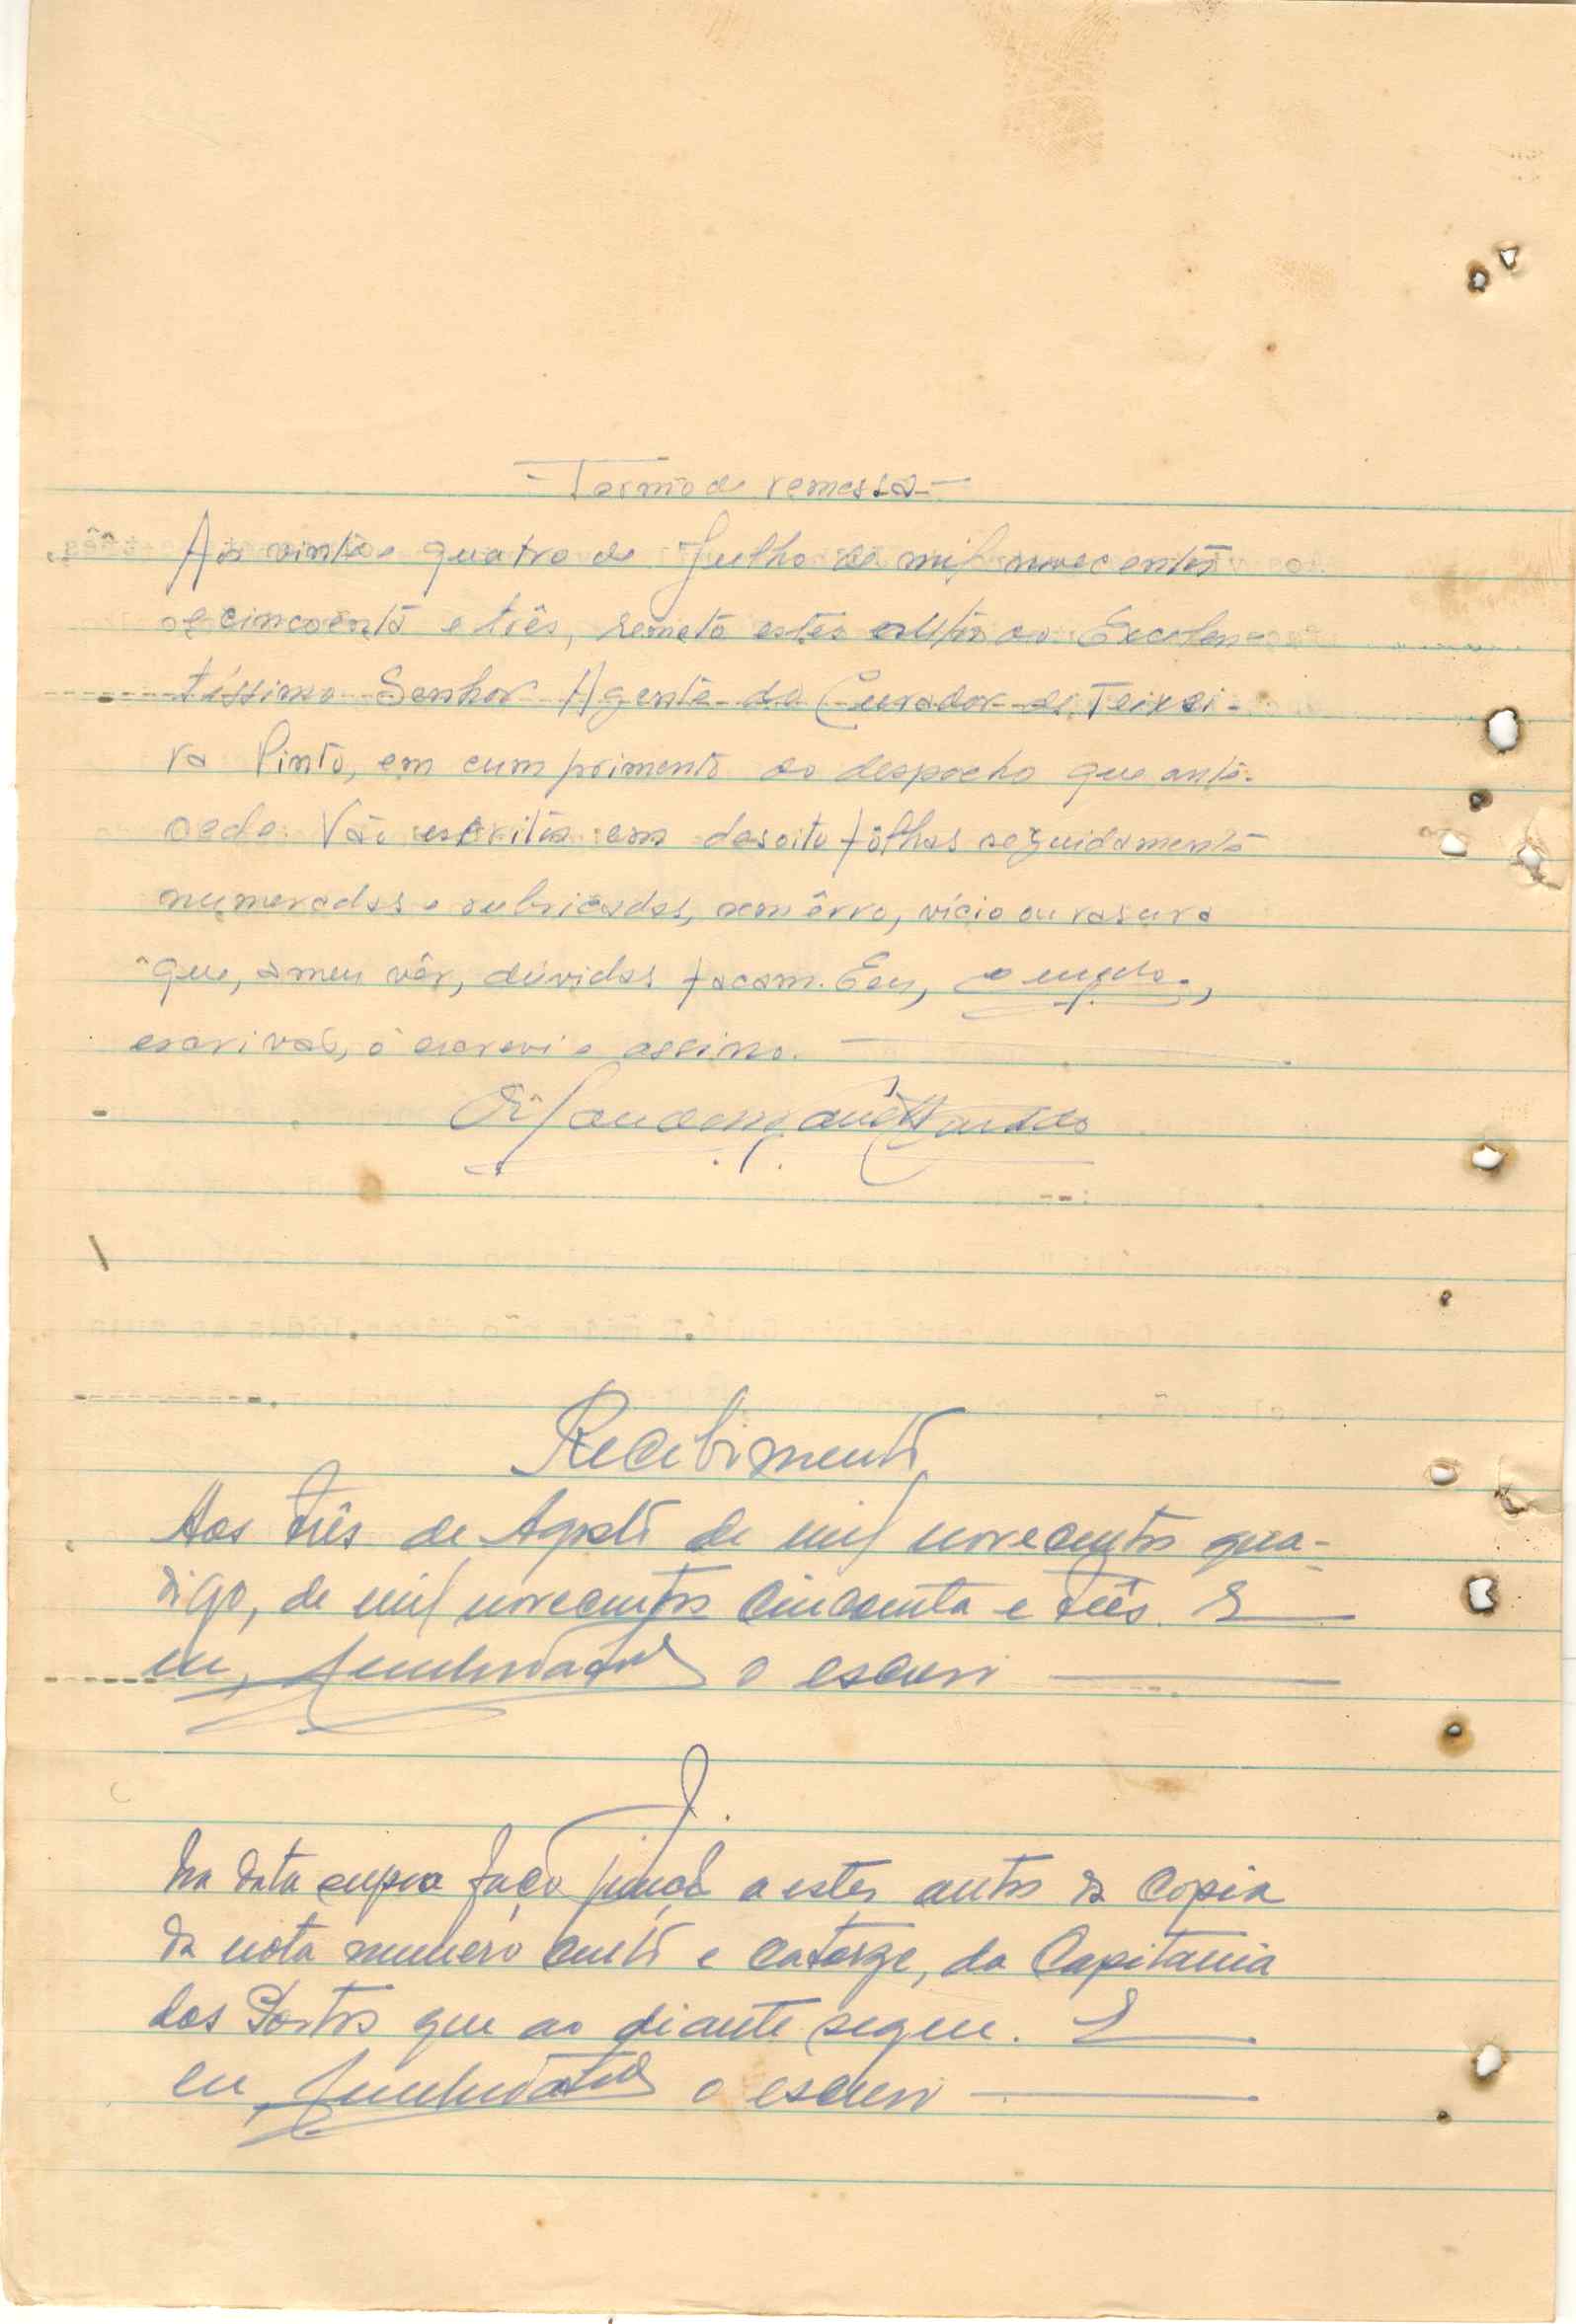 - Termo de remessa -
Aos vinte e quatro de Julho de mil novecentos
e cincoenta e três, remeto estes autos ao Excelen-
tíssimo Senhor Agente do Curador de Teixei-
ra Pinto, em cumprimento ao despacho que ante-
cede. Vão escritos em desoito fôlhas seguidamente
numeradas e rubricadas, sem êrro, vício ou rasura
que, a meu vêr, dúvidas façam. Eeu,
escrivão, o escrevi e assino.
Recebimento
Aos três de Agosto de mil novecentos qua-
digo, de mil novecentos cincoenta e três. E
eu, o escrevi
J.
Na data supra faço junção a estes autos da copia
da nota numero cento e catorze, da Capitania
dos Portos que ao diante segue. E
eu o escrevi